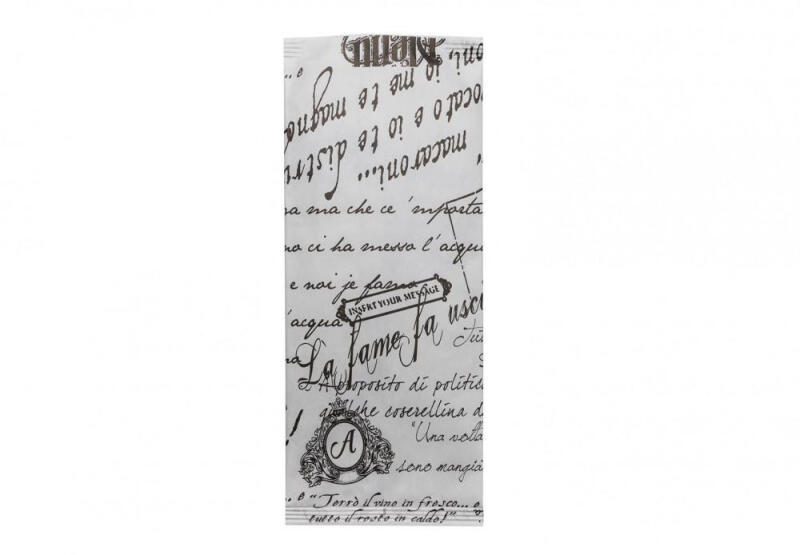 Menu
...e
oni, io me te magna
ocato e io te distru
macaroni... "
a ma che ce 'mporta
no ci ha messo l'acqua
e noi je famo
INSERT YOUR MESSAGE
l'acqua
La fame fa usci
A proposito di politic
qualche coserellina d
"Una volta
A
sono mangia
...e "Terrò il vino in fresco... e
tutto il resto in caldo!"